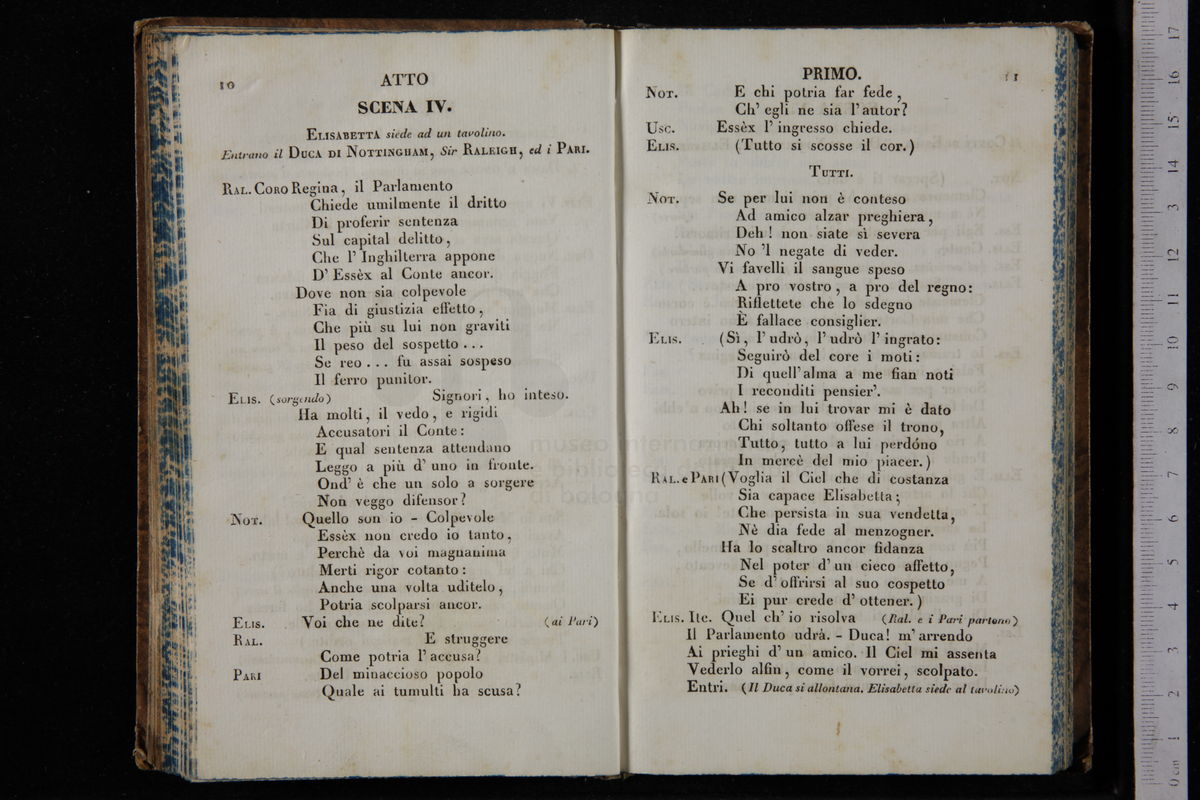 10
ATTO
SCENA IV.
ELISABETTA siede ad un tavolino.
Entrano il DUCA DI NOTTINGHAM, Sir RALEIGH, ed i PARI.
RAL. CORO Regina, il Parlamento
Chiede umilmente il dritto
Di proferir sentenza
Sul capital delitto,
Che l'Inghilterra appone
D'Essèx al Conte ancor.
Dove non sia colpevole
Fia di giustizia effetto,
Che più su lui non graviti
Il peso del sospetto...
Se reo... fu assai sospeso
Il ferro punitor.
ELIS. (sorgendo) Signori, ho inteso.
Ha molti, il vedo, e rigidi
Accusatori il Conte:
E qual sentenza attendano
Leggo a più d'uno in fronte.
Ond'è che un solo a sorgere
Non veggo difensor?
NOT. Quello son io - Colpevole
Essèx non credo io tanto,
Perchè da voi magnanima
Merti rigor cotanto:
Anche una volta uditelo,
Potria scolparsi ancor.
ELIS. Voi che ne dite? (ai Pari)
RAL. E struggere
Come potria l'accusa?
PARI Del minaccioso popolo
Quale ai tumulti ha scusa?
PRIMO.
11
NOT. E chi potria far fede,
Ch'egli ne sia l'autor?
USC. Essèx l'ingresso chiede.
ELIS. (Tutto si scosse il cor.)
TUTTI.
NOT. Se per lui non è conteso
Ad amico alzar preghiera,
Deh! non siate sì severa
No 'l negate di veder.
Vi favelli il sangue speso
A pro vostro, a pro del regno:
Riflettete che lo sdegno
È fallace consiglier.
ELIS. (Sì, l'udrò, l'udrò l'ingrato:
Seguirò del core i moti:
Di quell'alma a me fian noti
I reconditi pensier'.
Ah! se in lui trovar mi è dato
Chi soltanto offese il trono,
Tutto, tutto a lui perdóno
In mercè del mio piacer.)
RAL. e PARI (Voglia il Ciel che di costanza
Sia capace Elisabetta;
Che persista in sua vendetta,
Nè dia fede al menzogner.
Ha lo scaltro ancor fidanza
Nel poter d'un cieco affetto,
Se d'offrirsi al suo cospetto
Ei pur crede d'ottener.)
ELIS. Ite. Quel ch'io risolva (Ral. e i Pari partono)
Il Parlamento udrà. - Duca! m'arrendo
Ai prieghi d'un amico. Il Ciel mi assenta
Vederlo alfin, come il vorrei, scolpato.
Entri. (Il Duca si allontana. Elisabetta siede al tavolino)
museo internaz
e biblioteca d
di bologna
0 cm 1 2 3 4 5 6 7 8 9 10 11 12 13 14 15 16 17